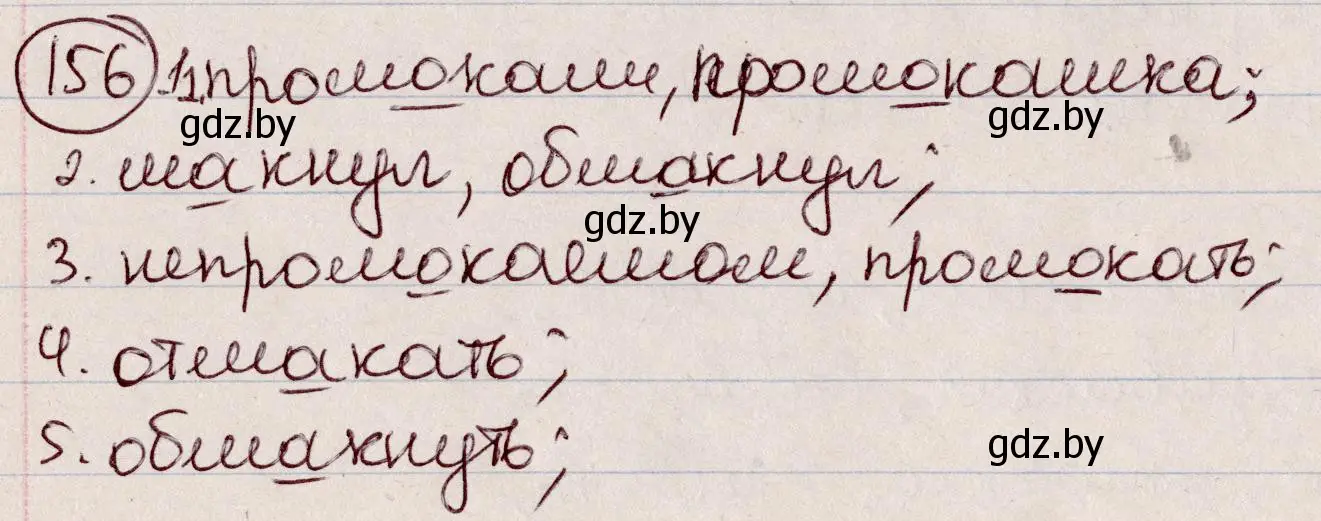 156 1. промокаши, промокашка;
gdz.by
gdz.by
2. макнул, обмакнул;
gdz.by
3. непромокаемом, промокать;
4. отмакать;
5. обмакнуть;
gdz.by